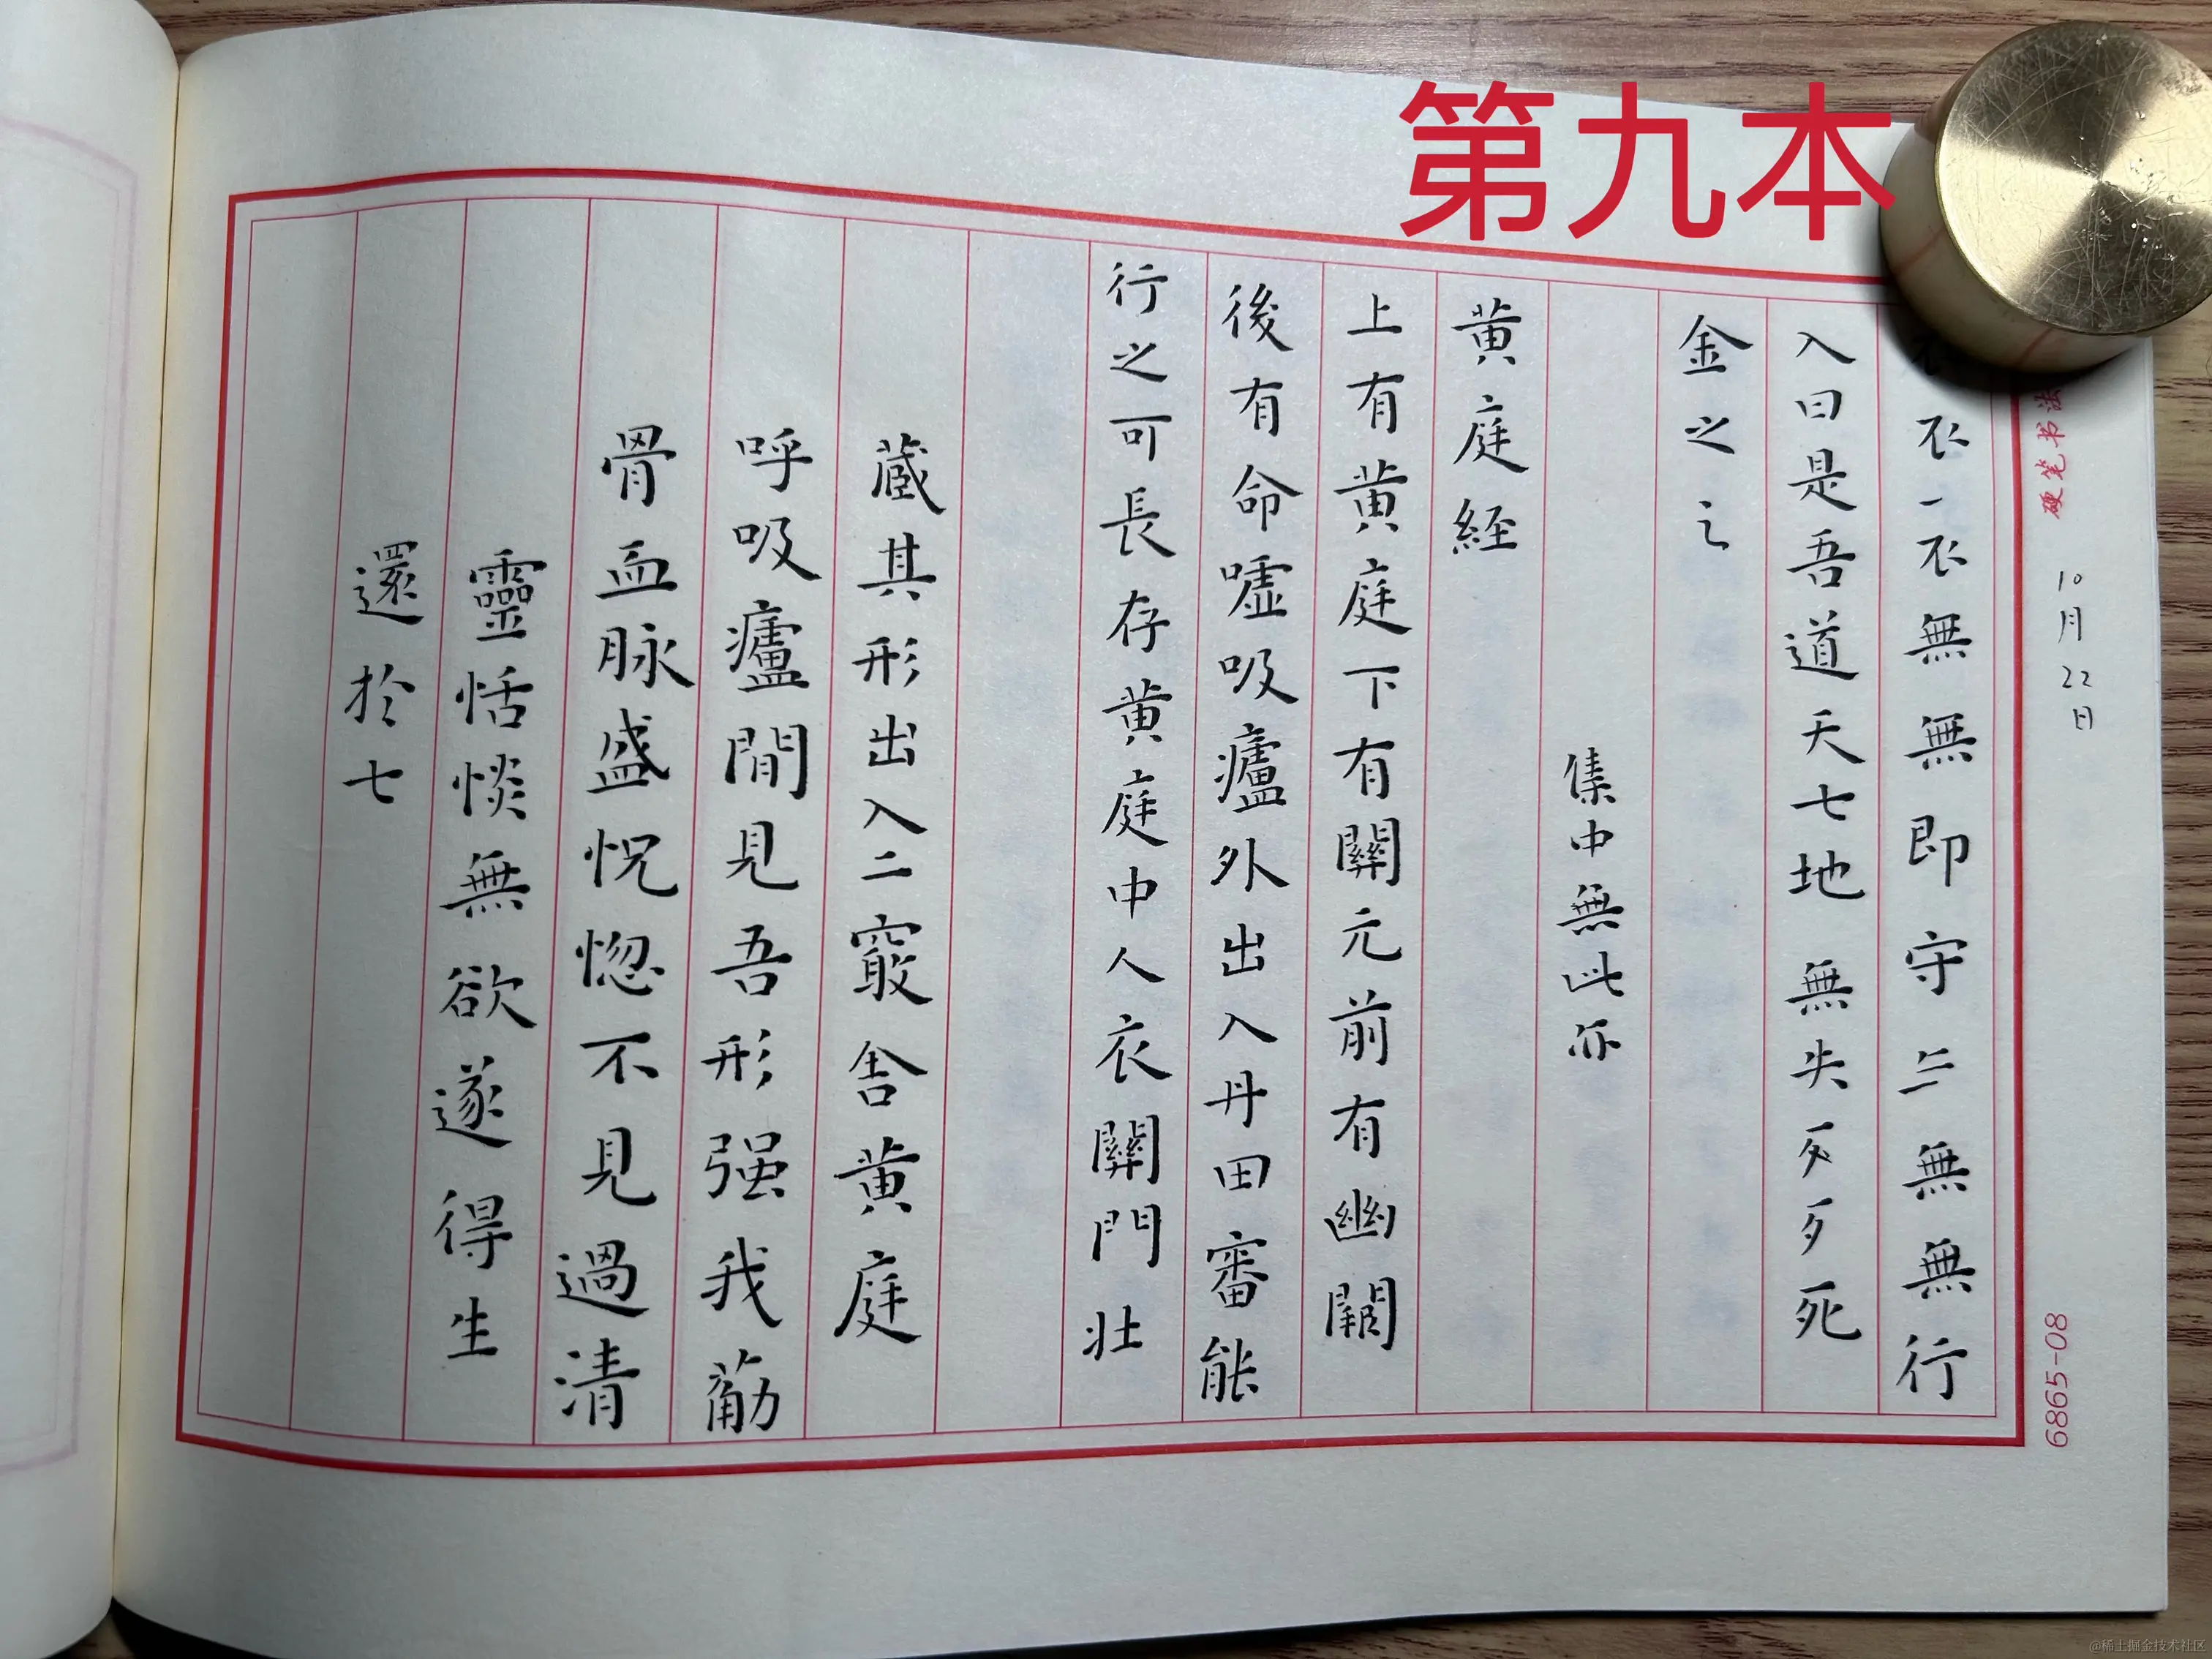 第九本
硬笔书法
10月22日
6865-08
衣一衣無無即守二無無行
入曰是吾道天七地無失死
金之
集中無此亦
黄庭経
上有黄庭下有關元前有幽闕
後有命嘘吸廬外出入丹田審能
行之可長存黄庭中人衣關門壮
蔵其形出入二竅舎黄庭
呼吸廬間見吾形强我筋
骨血脉盛怳惚不見過清
靈恬惔無欲遂得生
還於七
@稀土掘金技术社区